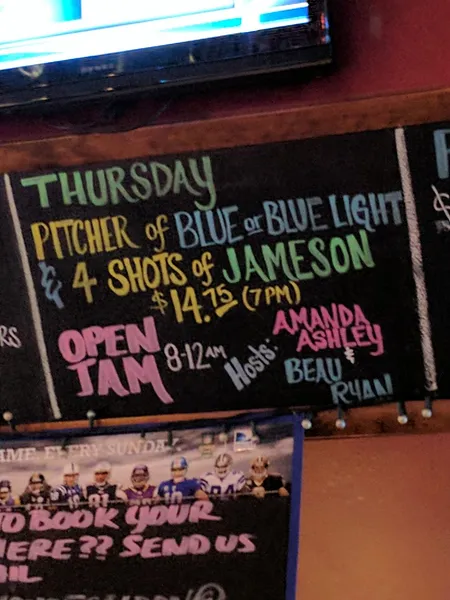 THURSDAY
PITCHER of BLUE or BLUE LIGHT
& 4 SHOTS of JAMESON
$14.75 (7PM)
OPEN JAM
8-12AM
Hosts:
AMANDA
ASHLEY
&
BEAU
RYAN
RS
AME. EVERY SUNDAY.
TO BOOK YOUR
HERE?? SEND US